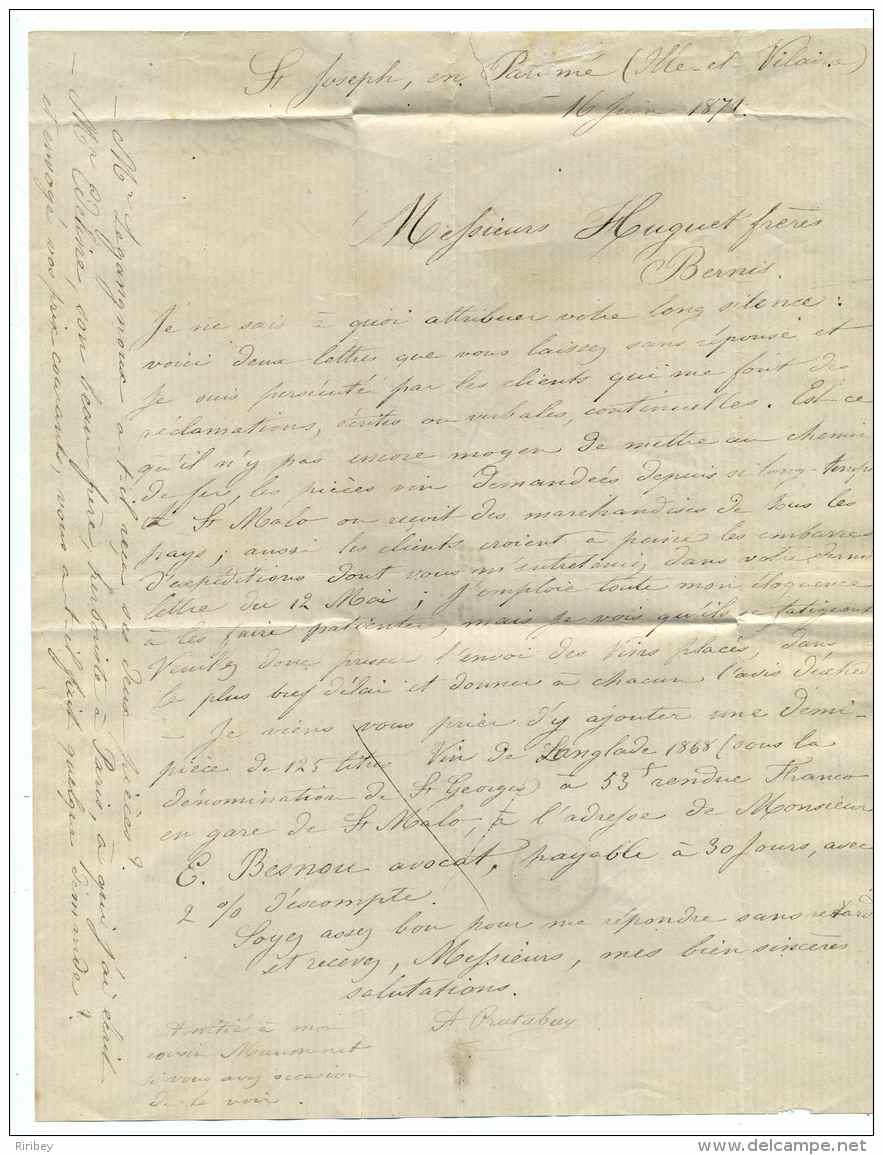 St Joseph, en Paramé (Ille-et-Vilaine)
16 Juin 1871.
Messieurs Huguet frères
Bernis.
Je ne sais à quoi attribuer votre long silence :
voici deux lettres que vous laissez sans réponse et
je suis persécuté par les clients qui me font des
réclamations, écrites ou verbales, continuelles. Est-ce
qu'il n'y pas encore moyen de mettre au chemin
de fer, les pièces vin demandées depuis si long-temps
à St Malo on reçoit des marchandises de tous les
pays ; aussi les clients croient à peine les embarras
d'expéditions dont vous m'entreteniez dans votre dernière
lettre du 12 Mai ; j'emploie toute mon éloquence
à les faire patienter, mais je vois qu'ils se fatiguent
Veuillez donc presser l'envoi des vins placés, dans
le plus bref délai et donner à chacun l'avis d'exped
- Je viens vous prier d'y ajouter une demi-
pièce de 125 litres Vin de Langlade 1868 (sous la
dénomination de St Georges) à 53f rendue Franco
en gare de St Malo, à l'adresse de Monsieur
E. Besnou avocat, payable à 30 jours, avec
2 % d'escompte.
Soyez assez bon pour me répondre sans retard
et recevez, Messieurs, mes bien sincères
salutations.
A Pratabuy
Amitiés à mon
cousin Maumenet
si vous avez occasion
de le voir.
- Mr Legangnoux a-t-il reçu ses deux pièces ?
- Mr , son beau-frère, herboriste à Paris, à qui j'ai écrit
et envoyé vos prix courants, vous a-t-il fait quelque demande ?
Riribey
www.delcampe.net